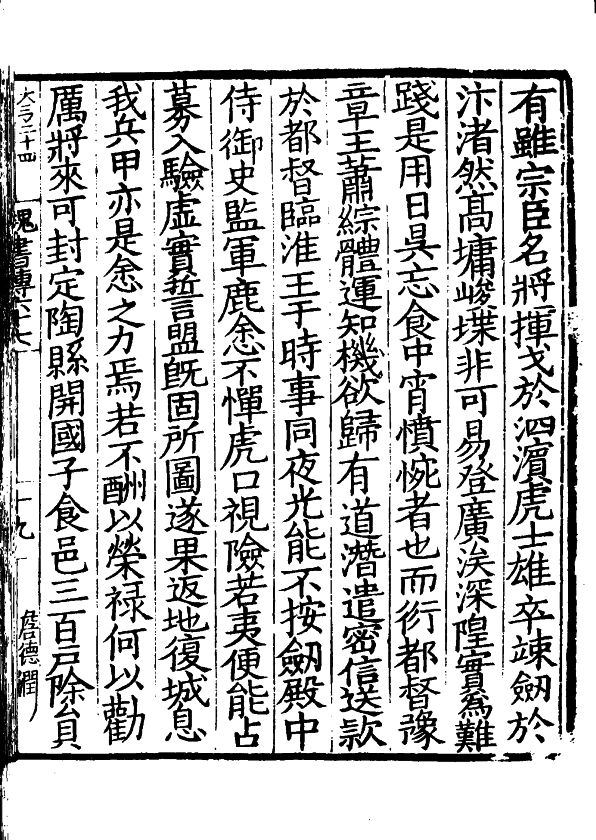 有雖宗臣名將揮戈於泗濱虎士雄卒竦劒於
汴渚然髙墉峻堞非可易登廣涘深隍實為難
踐是用日昃忘食中宵憤惋者也而衍都督豫
章王蕭綜體運知機欲歸有道潛遣密信送款
於都督臨淮王于時事同夜光能不按劒殿中
侍御史監軍鹿悆不憚虎口視險若夷便能占
募入驗虛實誓盟旣固所圖遂果返地復城息
我兵甲亦是悆之力焉若不酬以榮禄何以勸
厲將來可封定陶縣開國子食邑三百戸除貟
大三二十四
魏書傳六七
十九
詹德潤